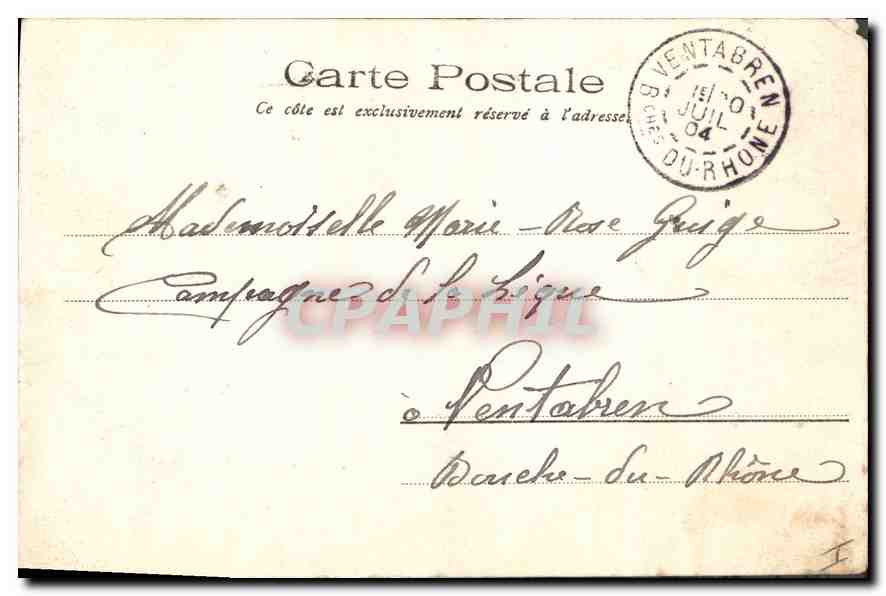 Carte Postale
Ce côte est exclusivement réservé à l'adresse.
VENTABREN
JUIL
04
Bches DU-RHONE
Mademoiselle Marie-Rose Guige
Campagne de la Lèque
CPAPHIL
à Ventabren
Bouche-du-Rhône
I